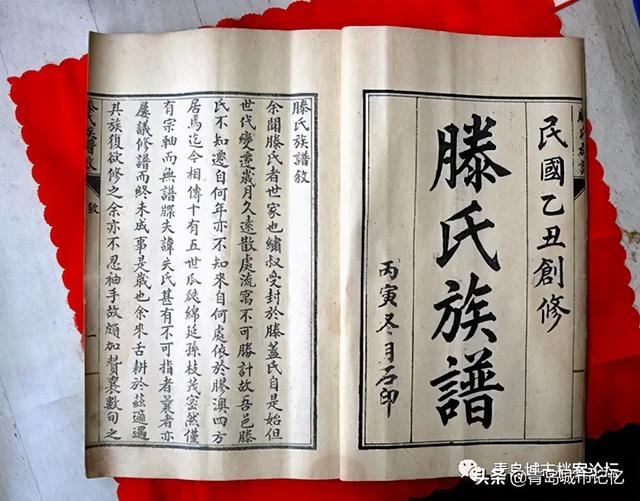 民國乙丑創修
滕氏族譜
丙寅冬月石印
滕氏族譜敘
余聞滕氏者世家也繡叔受封於滕蓋氏自是始但
世代變遷歲月久遠散處流寓不可勝計故吾邑滕
氏不知遷自何年亦不知來自何處依於膠澳四方
居焉迄今相傳十有五世瓜瓞綿延孫枝茂密然僅
有宗軸而無譜牒夫諱失氏甚有不可指者曩者亦
屢議修譜而終未成事是歲也余來舌耕於茲適遇
其族復欲修之余亦不忍袖手故頗加贊襄數旬之
敘
一
青岛城市档案论坛
头条 @青岛城市记忆